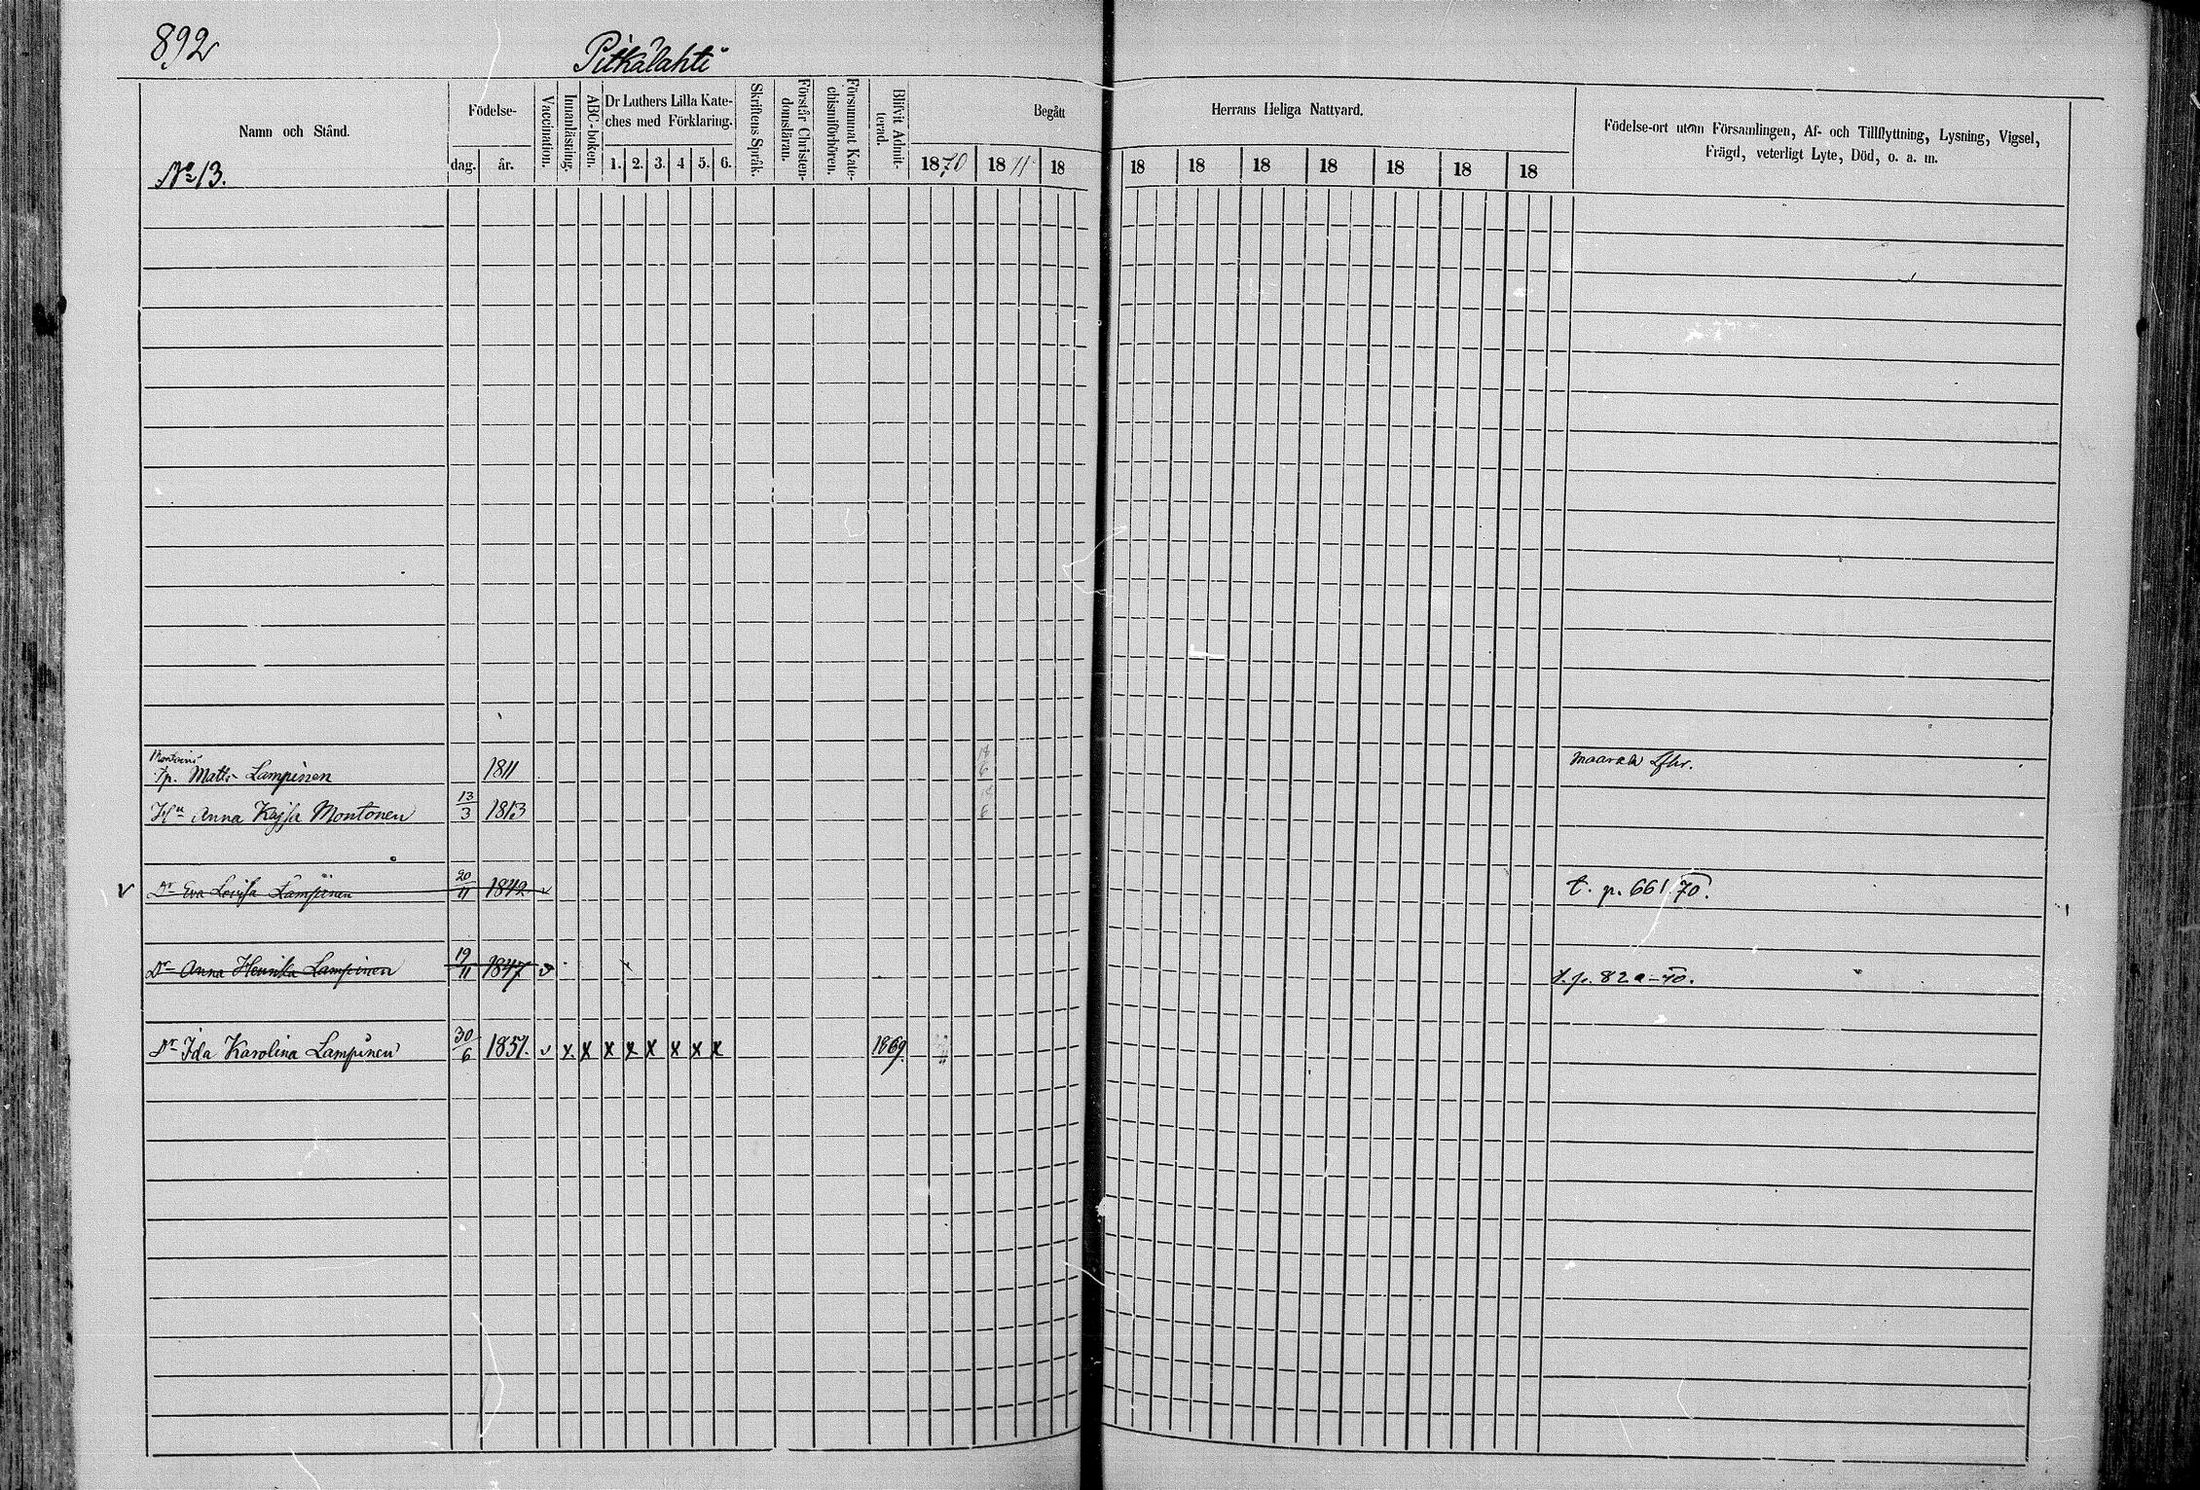 892
Pitkälahti
Namn och Stånd.
Födelse-
dag.
år.
Vaccination.
Innanläsning.
ABC-boken.
Dr Luthers Lilla Kate-
ches med Förklaring.
1. 2. 3. 4 5. 6.
Skriftens Språk.
Förstår Christen-
domsläran.
Försummat Kate-
chismiförhören.
Blifvit Admit-
terad.
Begått
Herrans Heliga Nattvard.
1870 1871 18 18 18 18 18 18 18 18
Födelse-ort utom Församlingen, Af- och Tillflyttning, Lysning, Vigsel,
Frägd, veterligt Lyte, Död, o. a. m.
No 13.
Matts Lampinen 1811
Hu Anna Kajsa Montonen 13/3 1813
v Dr Eva Lovisa Lampinen 20/11 1842 v t. p. 661. 70.
Dr Anna Henrika Lampinen 19/11 1847 v t. p. 82a-70.
Dr Ida Karolina Lampinen 30/6 1851. v x x x x x x x x 1869.